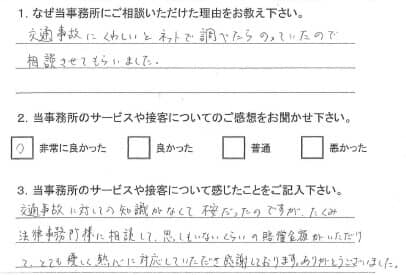 1. なぜ当事務所にご相談いただけた理由をお教え下さい。
交通事故にくわしいとネットで調べたらのっていたので
相談させてもらいました。
2. 当事務所のサービスや接客についてのご感想をお聞かせ下さい。
○ 非常に良かった 良かった 普通 悪かった
3. 当事務所のサービスや接客について感じたことをご記入下さい。
交通事故に対しての知識がなくて不安だったのですが、たくみ
法律事務所様に相談して、思いもしないくらいの賠償金額がいただけ
て、とても優しく熱心に対応していただき感謝しております。ありがとうございました。